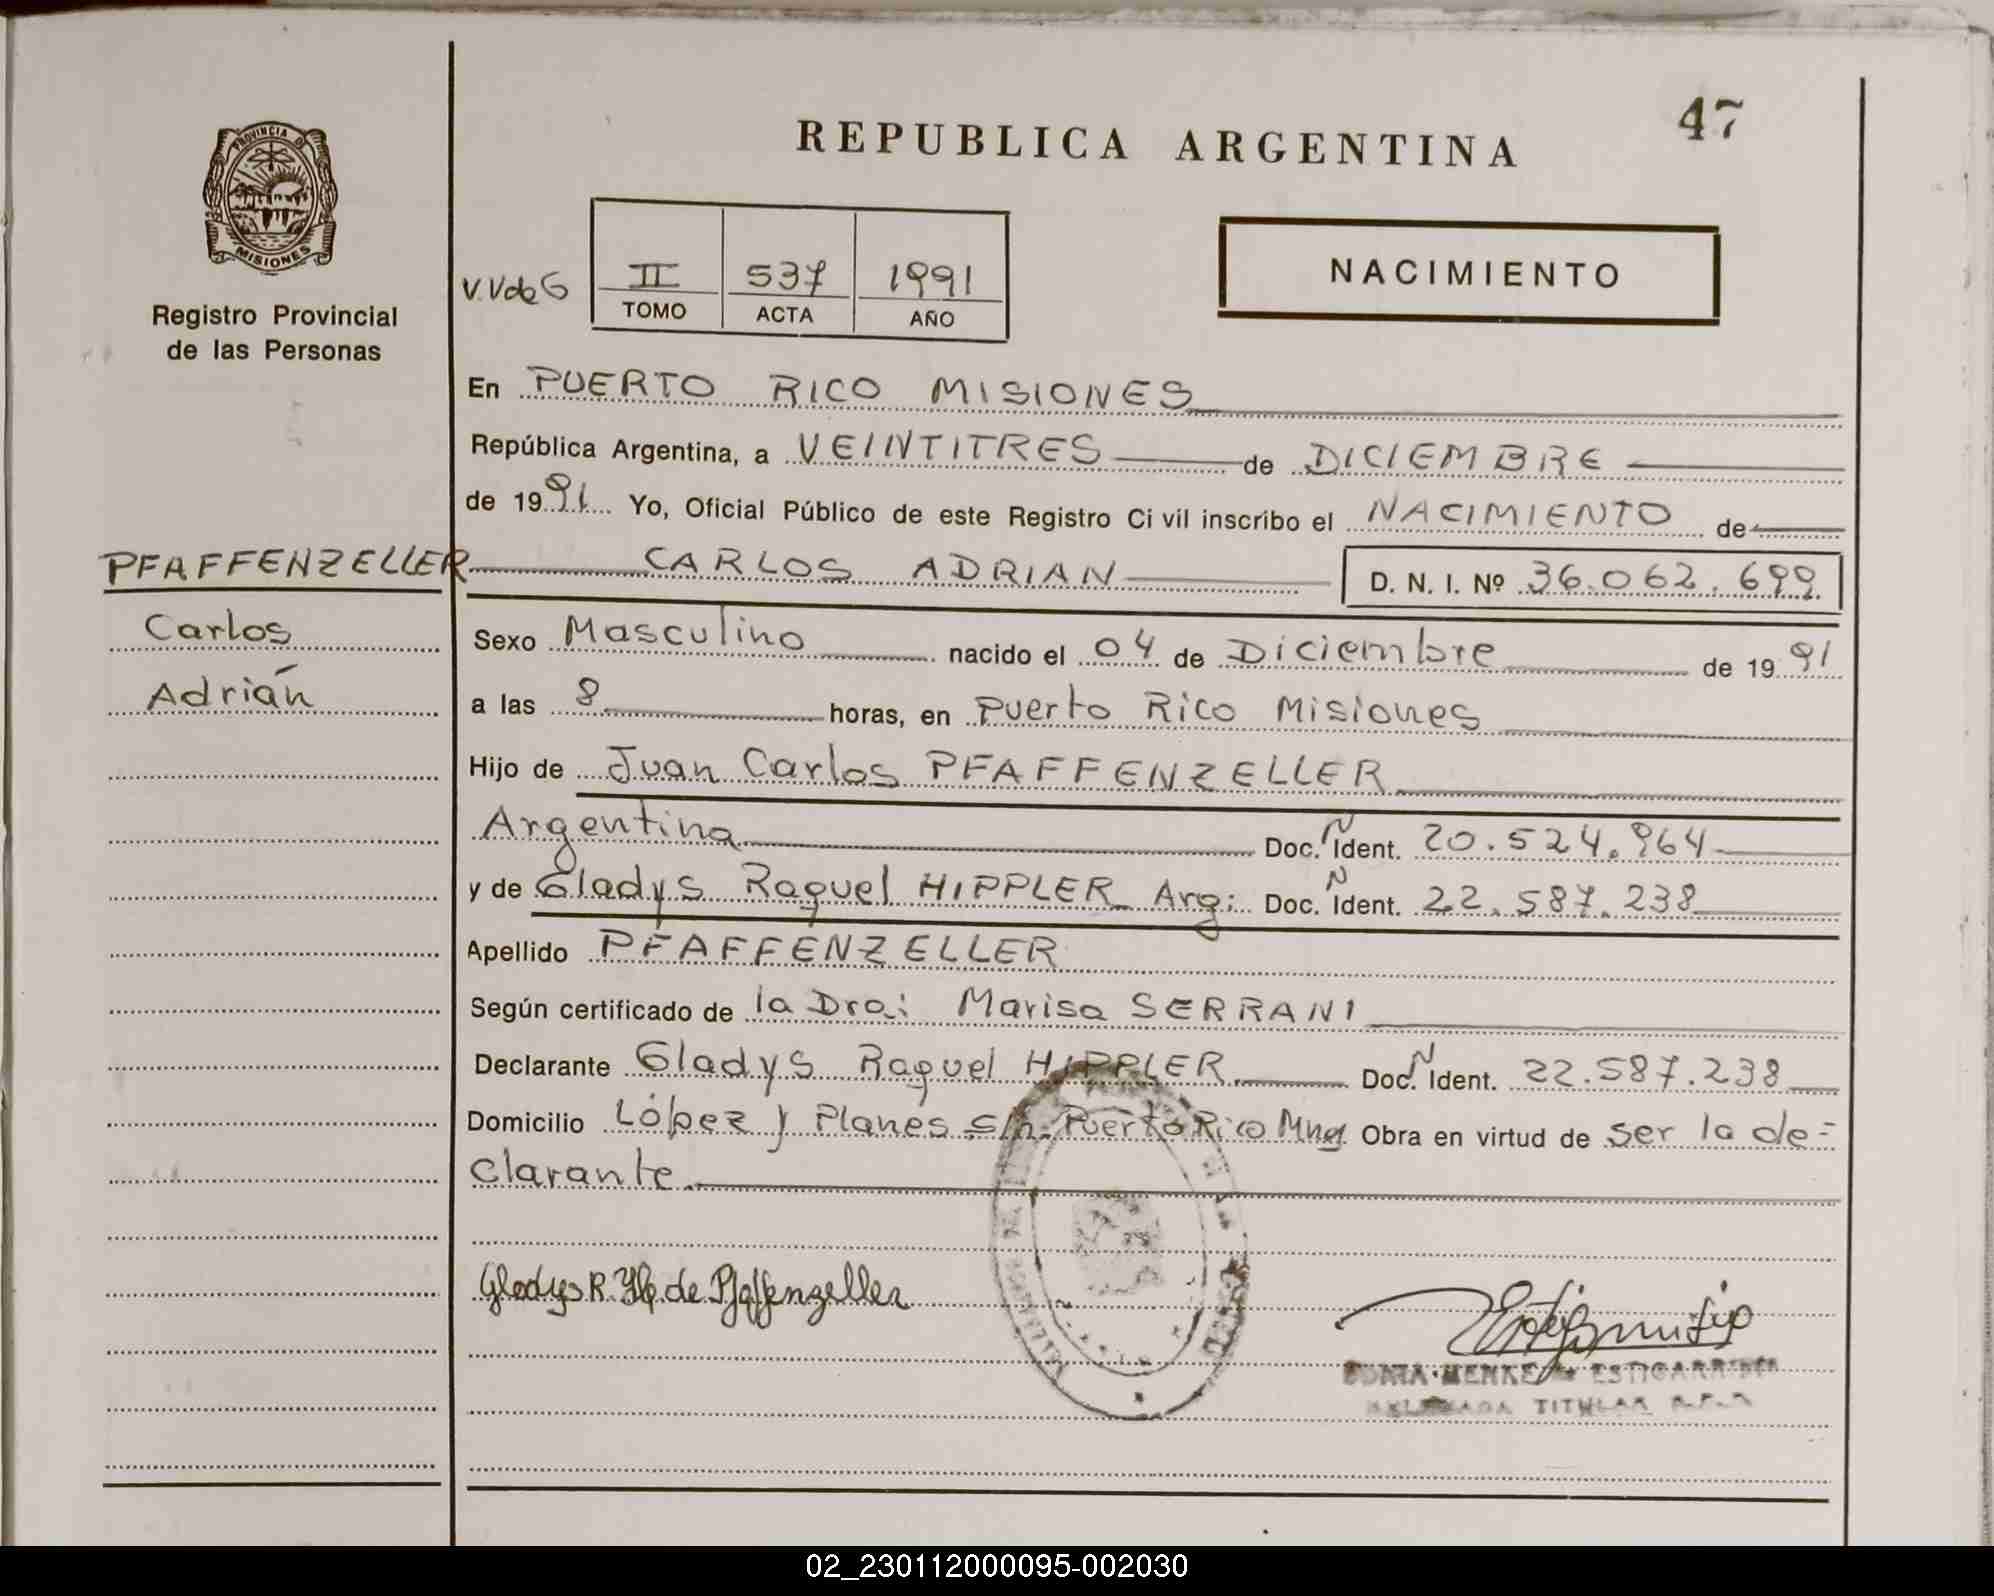 47
REPUBLICA ARGENTINA
PROVINCIA DE
MISIONES
Registro Provincial
de las Personas
V.VdeG
II 537 1991
TOMO ACTA AÑO
NACIMIENTO
En PUERTO RICO MISIONES
República Argentina, a VEINTITRES de DICIEMBRE
de 1991 Yo, Oficial Público de este Registro Ci vil inscribo el NACIMIENTO de
PFAFFENZELLER CARLOS ADRIAN D. N. I. Nº 36.062.699
Carlos
Adrián
Sexo Masculino nacido el 04 de Diciembre de 1991
a las 8 horas, en Puerto Rico Misiones
Hijo de Juan Carlos PFAFFENZELLER
Argentina Doc. N Ident. 20.524.964
y de Gladys Raquel HIPPLER Arg: Doc. N Ident. 22.587.238
Apellido PFAFFENZELLER
Según certificado de la Dra: Marisa SERRANI
Declarante Gladys Raquel HIPPLER Doc. N Ident. 22.587.238
Domicilio López y Planes s/n. Puerto Rico Mnes Obra en virtud de ser la de=
clarante
Gladys R. H. de Pfaffenzeller
MENKE de ESTIGARRIBIA
DELEGADA TITULAR R.P.P.
02_230112000095-002030